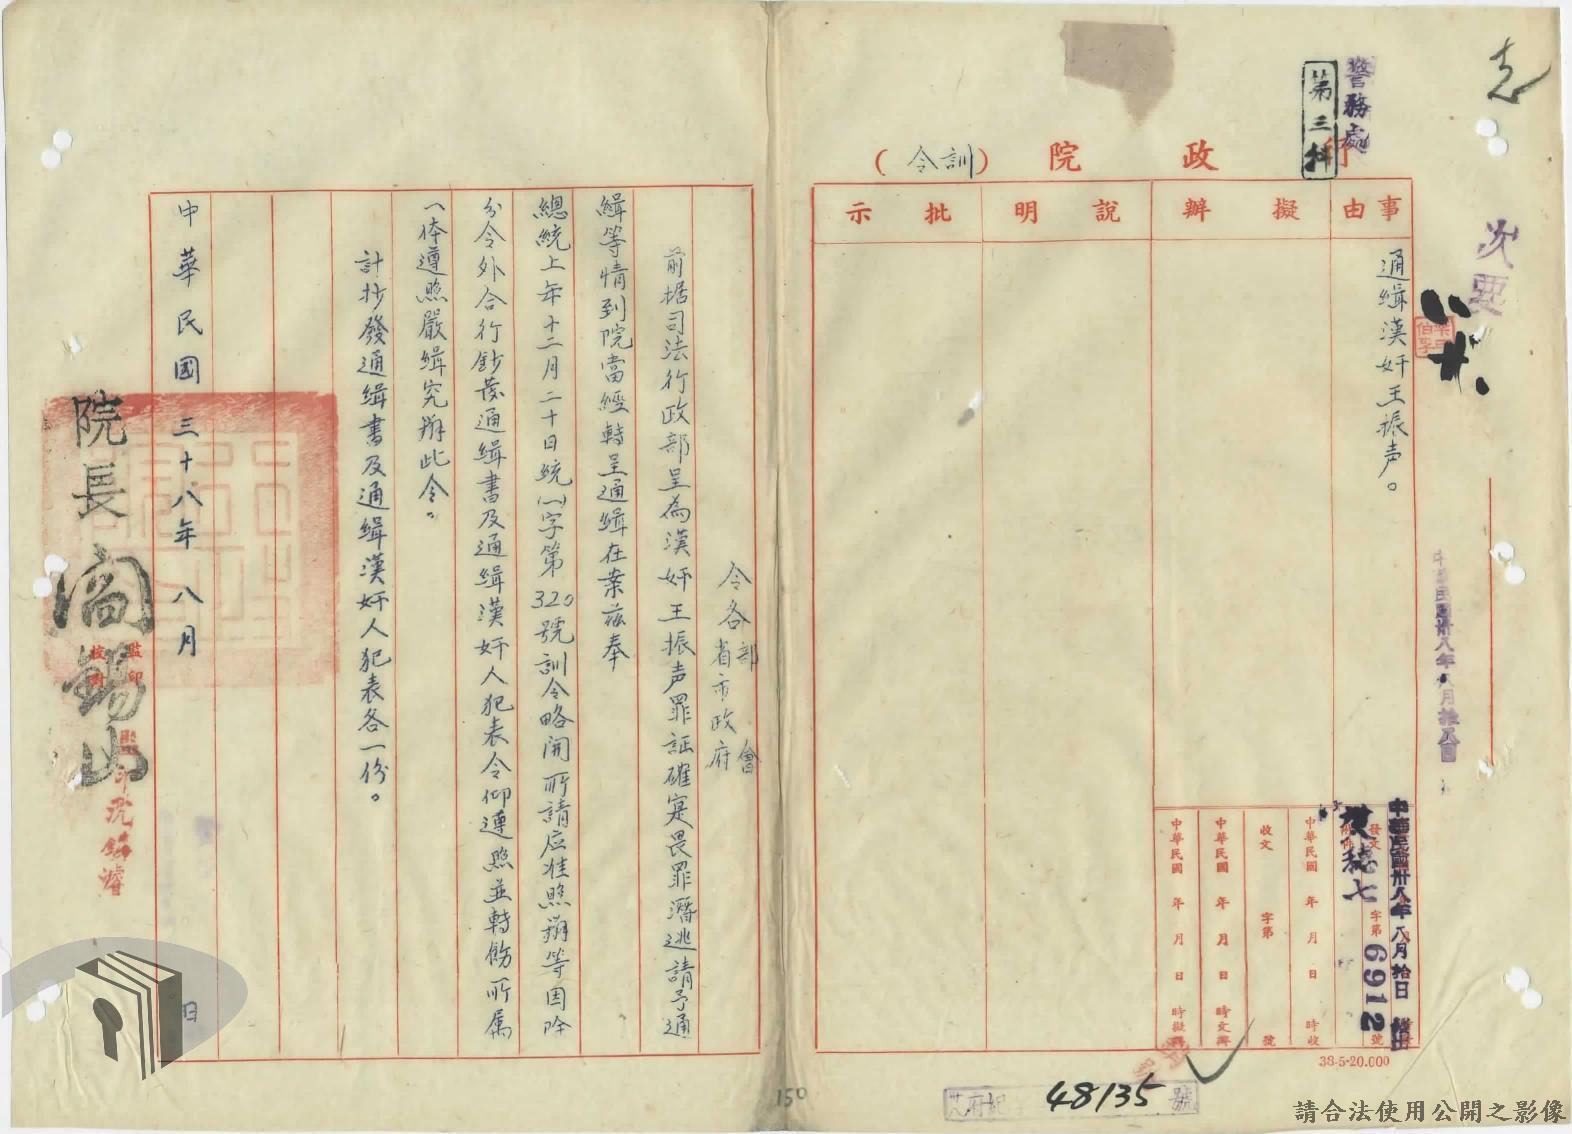 志
次要
警務處
第三科
行政院(訓令)
事由
擬辦
說明
批示
通緝漢奸王振声。
中華民國卅八年八月拾日
發文
字第6912號
穗七
中華民國 年 月 日 時收
收文 字第 號
中華民國 年 月 日 時交辦
中華民國 年 月 日 時擬辦
38·5·20.000
48135號
150
令各部會
省市政府
前据司法行政部呈為漢奸王振声罪証確寔畏罪潛逃請予通
緝等情到院當經轉呈通緝在案茲奉
總統上年十二月二十日統㈠字第320號訓令略開所請应准照辦等因除
分令外合行鈔發通緝書及通緝漢奸人犯表令仰遵照並轉飭所属
一体遵照嚴緝究辦此令。
計抄發通緝書及通緝漢奸人犯表各一份。
中華民國三十八年八月 日
院長閻錫山
監印
校對
請合法使用公開之影像